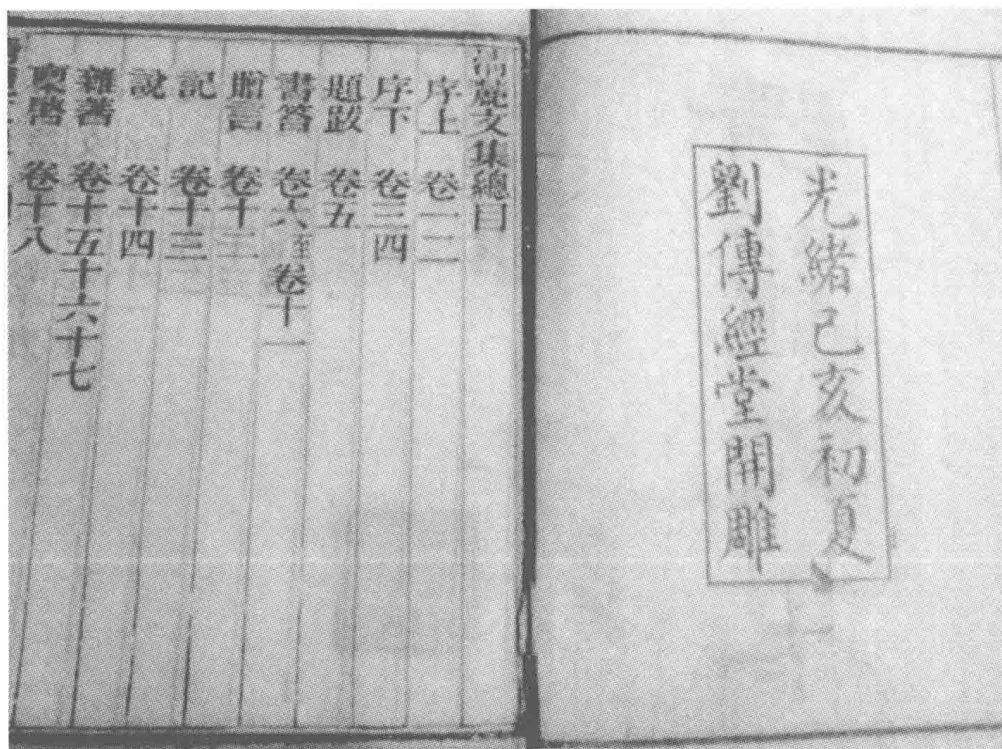 光緒己亥初夏
劉傳經堂開雕
清麓文集總目
序上 卷一二
序下 卷三四
題跋 卷五
書答 卷六至卷十一
贈言 卷十二
記 卷十三
說 卷十四
雜著 卷十五十六十七
稟啓 卷十八